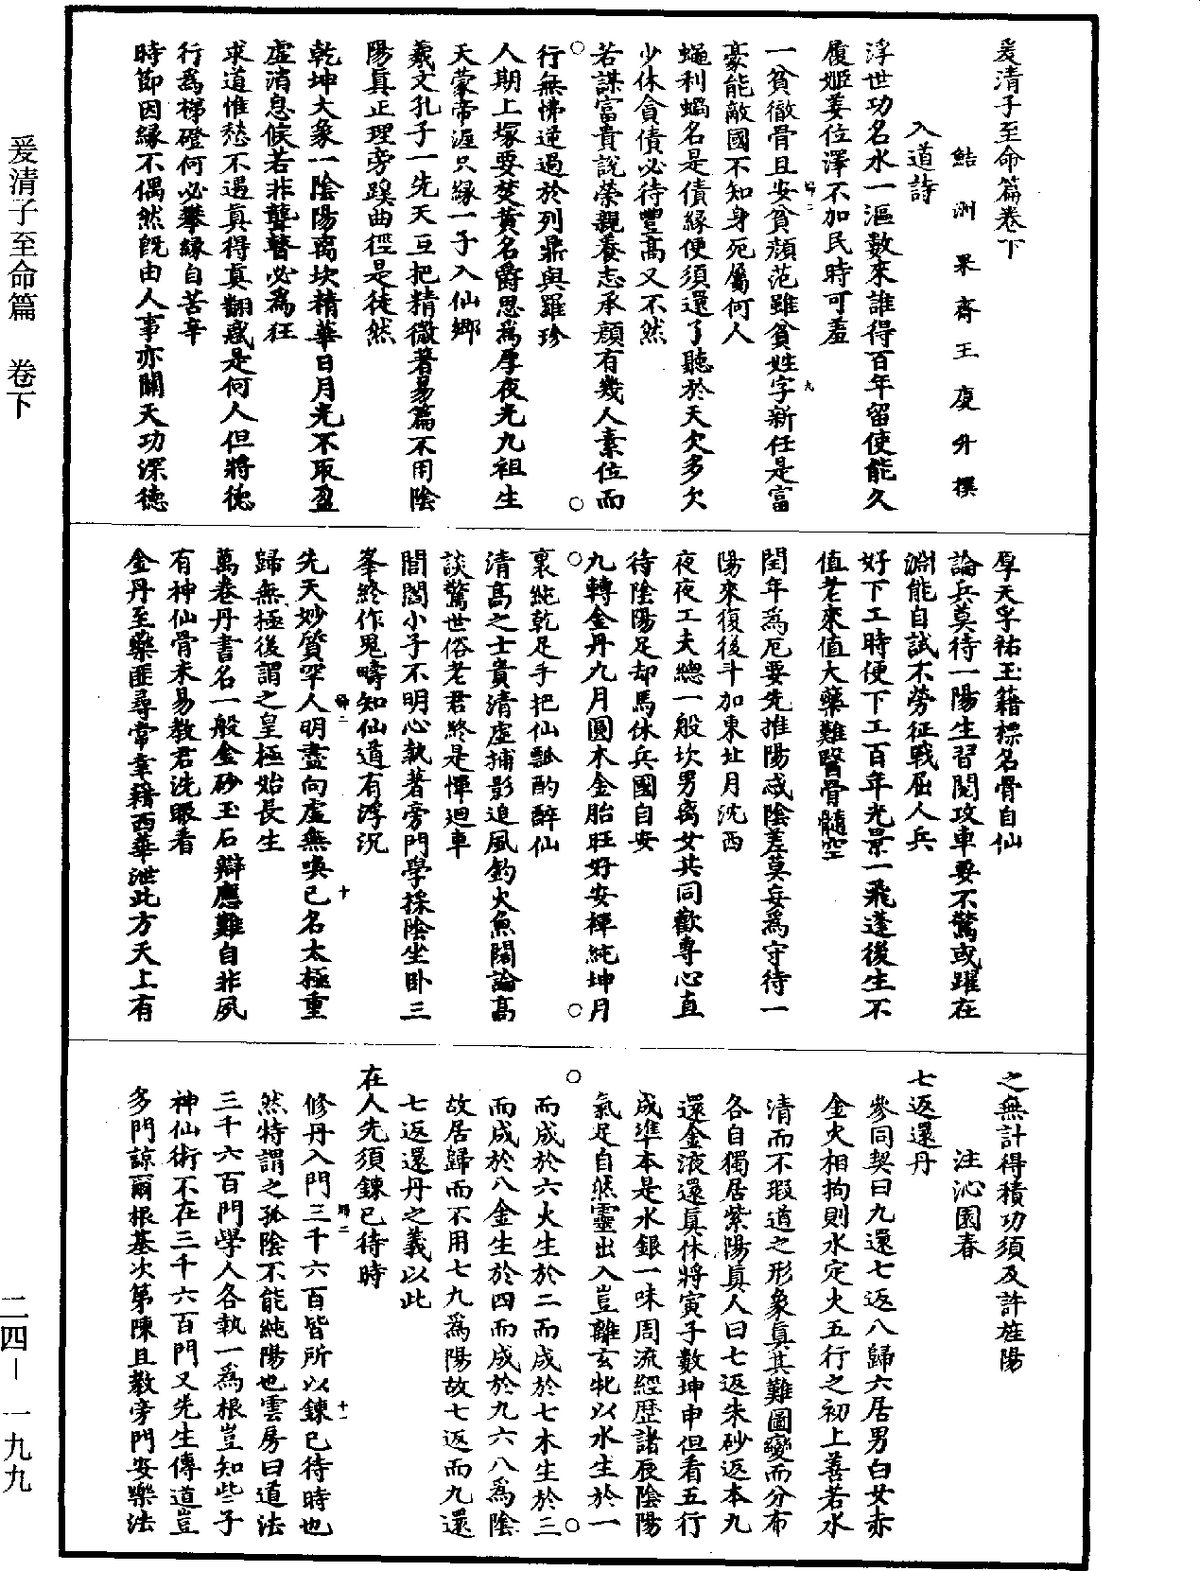 爰清子至命篇卷下
鮚洲果齋王慶升撰
入道詩
浮世功名水一漚數來誰得百年留使能久
履姬姜位澤不加民時可羞
一貧徹骨且安貧顏范雖貧姓字新任是富
豪能敵國不知身死屬何人
蠅利蝸名是債緣便須還了聽於天欠多欠
少休貪債必待豐高又不然
若謀富貴說榮親養志承顏有幾人素位而
行無怫逆過於列鼎與羅珍
人期上塚要焚黃名爵恩爲厚夜光九祖生
天蒙帝渥只緣一子入仙鄉
羲文孔子一先天互把精微著易篇不用陰
陽真正理旁蹊曲徑是徒然
乾坤大象一陰陽离坎精華日月光不取盈
虛消息候若非聾瞽必爲狂
求道惟愁不遇真得真翻惑是何人但將德
行爲梯磴何必攀緣自苦辛
時節因緣不偶然旣由人事亦關天功深德
厚天孚祐玉籍標名骨自仙
論兵莫待一陽生習閱攻車要不驚或躍在
淵能自試不勞征戰屈人兵
好下工時便下工百年光景一飛蓬後生不
值老來值大藥難醫骨髓空
閏年爲厄要先推陽忒陰差莫妄爲守待一
陽來復後斗加東北月沈西
夜夜工夫總一般坎男离女共同歡專心直
待陰陽足却馬休兵國自安
九轉金丹九月圓木金胎旺好安禪純坤月
裏純乾足手把仙瓢酌醉仙
清高之士貴清虛捕影追風釣火魚闊論高
談驚世俗老君終是憚迴車
閭閻小子不明心執著旁門學採陰坐卧三
峯終作鬼疇知仙道有浮沉
先天妙質罕人明盡向虛無喚已名太極重
歸無極後謂之皇極始長生
萬卷丹書名一般金砂玉石辯應難自非夙
有神仙骨未易教君洗眼看
金丹至藥匪尋常韋藉西華泄此方天上有
之無計得積功須及許旌陽
注沁園春
七返還丹
參同契曰九還七返八歸六居男白女赤
金火相拘則水定火五行之初上善若水
清而不瑕道之形象真其難圖變而分布
各自獨居紫陽真人曰七返朱砂返本九
還金液還真休將寅子數坤申但看五行
成準本是水銀一味周流經歷諸辰陰陽
氣足自然靈出入豈離玄牝以水生於一
而成於六火生於二而成於七木生於三
而成於八金生於四而成於九六八爲陰
故居歸而不用七九爲陽故七返而九還
七返還丹之義以此
在人先須鍊已待時
修丹入門三千六百皆所以鍊已待時也
然特謂之孤陰不能純陽也雲房曰道法
三千六百門學人各執一爲根豈知些子
神仙術不在三千六百門又先生傳道豈
多門諒爾根基次第陳且教旁門安樂法
爰清子至命篇 卷下
二四－一九九
歸二 九
歸二 十
歸二 十一